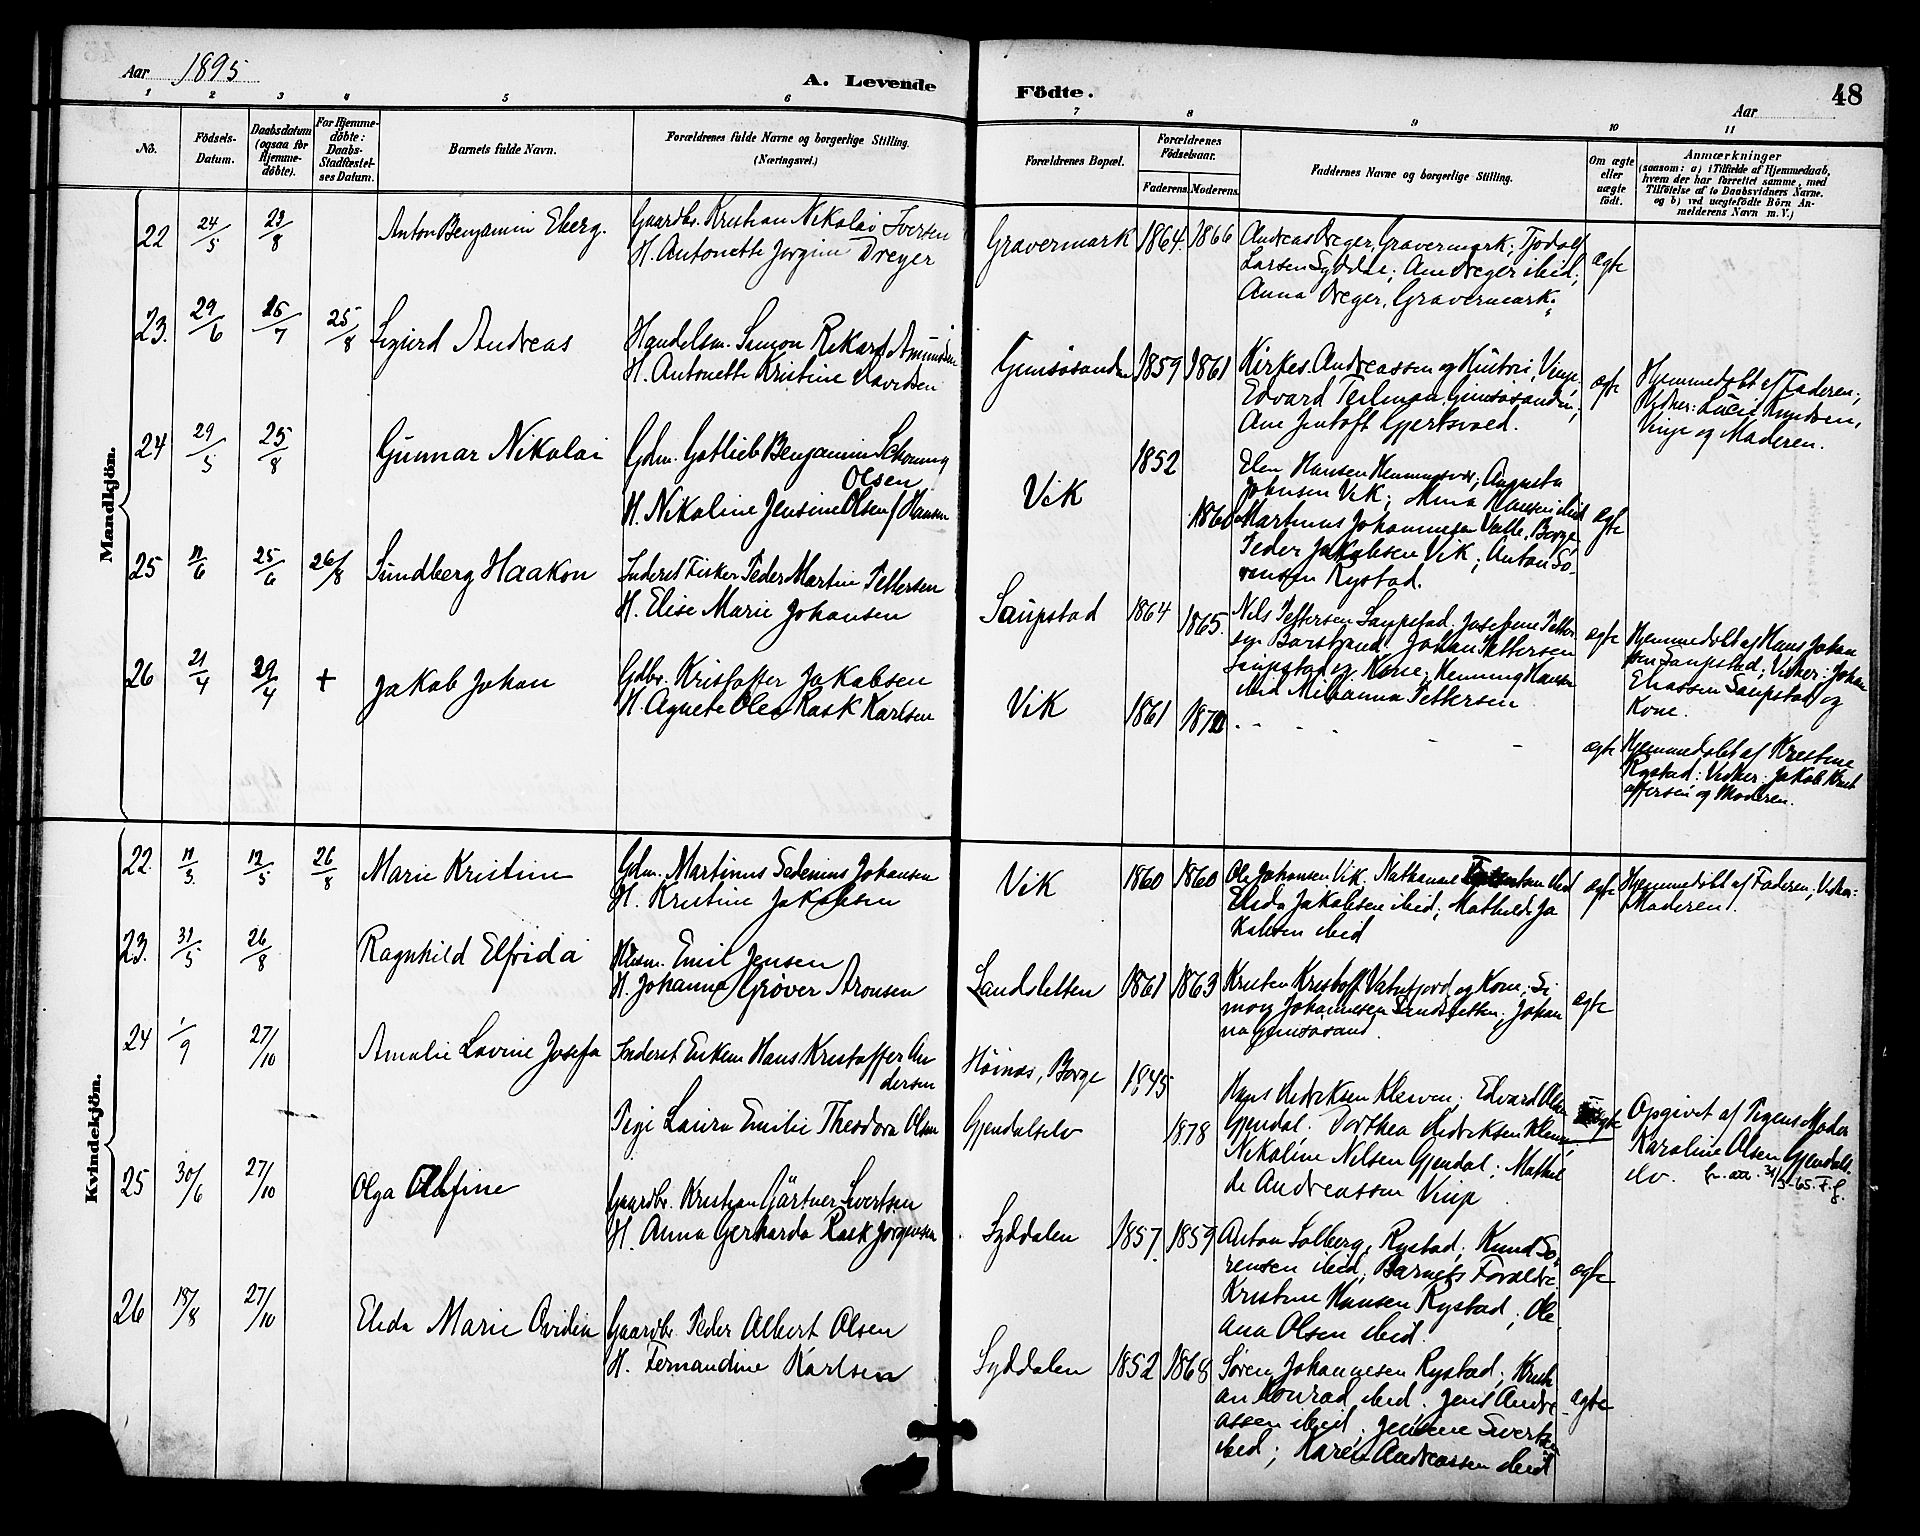 Aar 1895
A. Levende
Födte.
Aar
48
1 2 3 4 5 6 7 8 9 10 11
No.
Födsels-
Datum.
Daabsdatum
(ogsaa for
Hjemme-
døbte).
For Hjemme-
døbte:
Daabs-
Stadfæstel-
ses Datum.
Barnets fulde Navn.
Forældrenes fulde Navne og borgerlige Stilling.
(Næringsvei.)
Forældrenes Bopæl.
Forældrenes
Fødselsaar.
Faderens. Moderens.
Faddernes Navne og borgerlige Stilling.
Om ægte
eller
uægte
født.
Anmærkninger
(saasom: a) i Tilfælde af Hjemmedaab,
hvem der har forrettet samme, med
Tilføielse af to Daabsvidners Navne.
og b) ved uægtefödte Börn An-
melderens Navn m. V.)
Mandkjön.
22 24/5 23/8 Anton Benjamin Eberg.
Gaardbr. Kristian Nikolai Iversen
H. Antonette Jørgine Dreyer
Gravermark 1864. 1866
Andreas Dreyer, Gravermark; Tjodolf
Larsen Syddal; Ane Dreyer ibid;
Anna Dreyer, Gravermark.
ægte
23. 29/6 26/7 25/8 Sigurd Andreas
Handelsm. Simon Rikard Amundsen
H. Antonette Kristine Davidsen
Gimsøsanden 1859 1861
Kirkes. Andreassen og Hustru, Vinje.
Edvard Teilman, Gimsøsanden;
Ane Jentoft Gjertsvold.
ægte
Hjemmedøbt af Faderen;
Vidner: Lucie Knudsen,
Vinje og Moderen.
24 29/5 25/8 Gunnar Nikolai
Gdm. Gotlieb Benjamin Schonning
Olsen
H. Nikoline Jensine Olsen f. Hansen
Vik 1852 1860
Elen Hansen Henningsvær; Augusta
Johnsen Vik; Mina Hansen ibid
Martinus Johannesen Valle, Borge
Peder Jakobsen Vik; Anton Sø-
rensen Rystad.
ægte
25 11/6 25/6 26/8 Sundberg Haakon
Inderst Fisker Peder Martin Pettersen
H. Elise Marie Johansen
Saupstad 1864 1865.
Nils Pettersen Saupstad. Josefine Petter-
sen Barstrand. Johan Pettersen
Saupstad og Kone; Henning Hansen
ibid Milianna Pettersen
ægte
Hjemmedøbt af Hans Johan
sen Saupstad; Vidner: Johan
Eliassen Saupstad og
Kone.
26 21/4 29/4 + Jakob Johan
Gdbr. Kristoffer Jakobsen
H. Agnete Olea Rask Karlsen
Vik 1861
ægte
Hjemmedøbt af Kristine
Rystad: Vidner: Jakob Krist
offersen og Moderen.
Kvindekjön.
22. 11/3. 12/5 26/8 Marie Kristine
Gdm. Martinus Sedenius Johansen
H. Kristine Jakobsen
Vik 1860 1860
Ole Johansen Vik. Nathanael ibid
Elida Jakobsen ibid; Mathilde Ja
kobsen ibid
ægte
Hjemmedøbt af Faderen; Vidner:
Moderen.
23. 31/5 26/8 Ragnhild Elfrida
Husm. Emil Jensen
H. Johanna Grøver Aronsen
Sandsletten 1861 1863
Kristen Kristoff. Vatnfjord og Kone; Si
mon Johannesen Sandsletten; Johan
na Gimsøsand.
ægte
24 1/9 27/10 Amalie Lovine Josefa
Inderst Enkem. Hans Kristoffer An
dersen
Pige Laura Emilie Theodora Olsen
Høinæs, Borge 1845
Gjendalselv 1878
Hans Hedriksen Kleiven; Edvard Olsen
Gjendal. Dorthea Hedriksen Kleiven
Nikoline Nilsen Gjendal; Mathil
de Andreassen Vinje
uægte
Opgivet af Pigens Moder
Karoline Olsen Gjendals-
elv.
25 30/6 27/10 Olga Alfine
Gaardbr. Kristian Gärtner Sivertsen
H. Anna Gerharda Rask Jørgensen
Syddalen 1857. 1859
Anton Solberg, Rystad; Knud Sø-
rensen ibid; Barnets Forældre.
Kristine Hansen Rystad; Ole
ana Olsen ibid.
ægte
26 18/8 27/10 Elida Marie Ovidia
Gaardbr. Peder Albert Olsen
H. Fernandine Karlsen
Syddalen 1852 1868
Søren Johannesen Rystad; Kristi
an Konrad ibid. Jens Andre-
assen ibid; Jensine Sivertsen
ibid; Karen Andreassen ibid
ægte